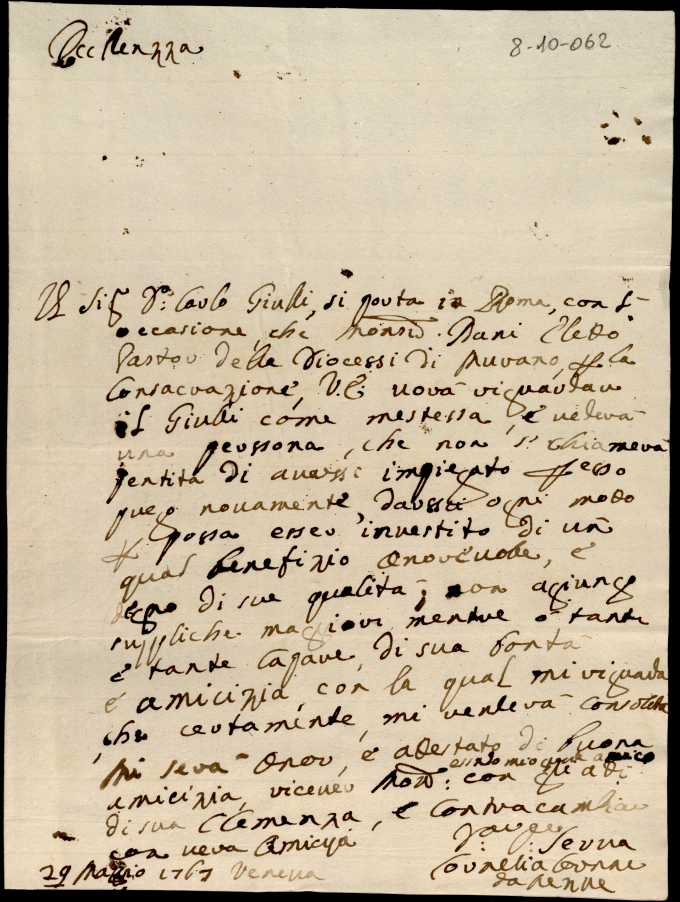 Eccllenzza
8-10-062
Il Sig D.n Carlo Giulli, si porta in Roma, con l-
occasione, che Monsig. Dani Eletto
Pastor delle Diocessi di Murano, per la
Consacrazione, V.E. vorà riguardar
il Giulli come mestessa, e vederà
una perssona, che non si chiamerà
pentita di aversi impiegato per esso
prego novamente, darssi ogni modo
per possa esser investito di un
qual benefizio onorevole, e
degno di sue qualità; non agiungo
suppliche magiori mentre ò tante
e tante Capare, di sua bontà
e amicizia, con la qual mi riguarda
che certamente, mi renderà consolata
Mi serà onor, e atestato di buona
amicizia, ricever Mons: con gli atti
essendo mio grande amico
di sua Clemenza, e Contracambiar
con vera Amicizia
Serva
Cornelia
29 Marzo 1767 Venezia